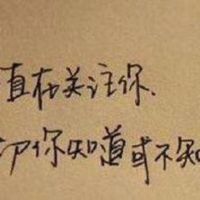 直在关注你.
你知道或不知